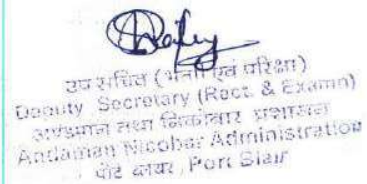 उप सचिव (भर्ती एवं परीक्षा)
Deputy Secretary (Rect. & Examn)
अण्डमान तथा निकोबार प्रशासन
Andaman Nicobar Administration
पोर्ट ब्लायर, Port Blair